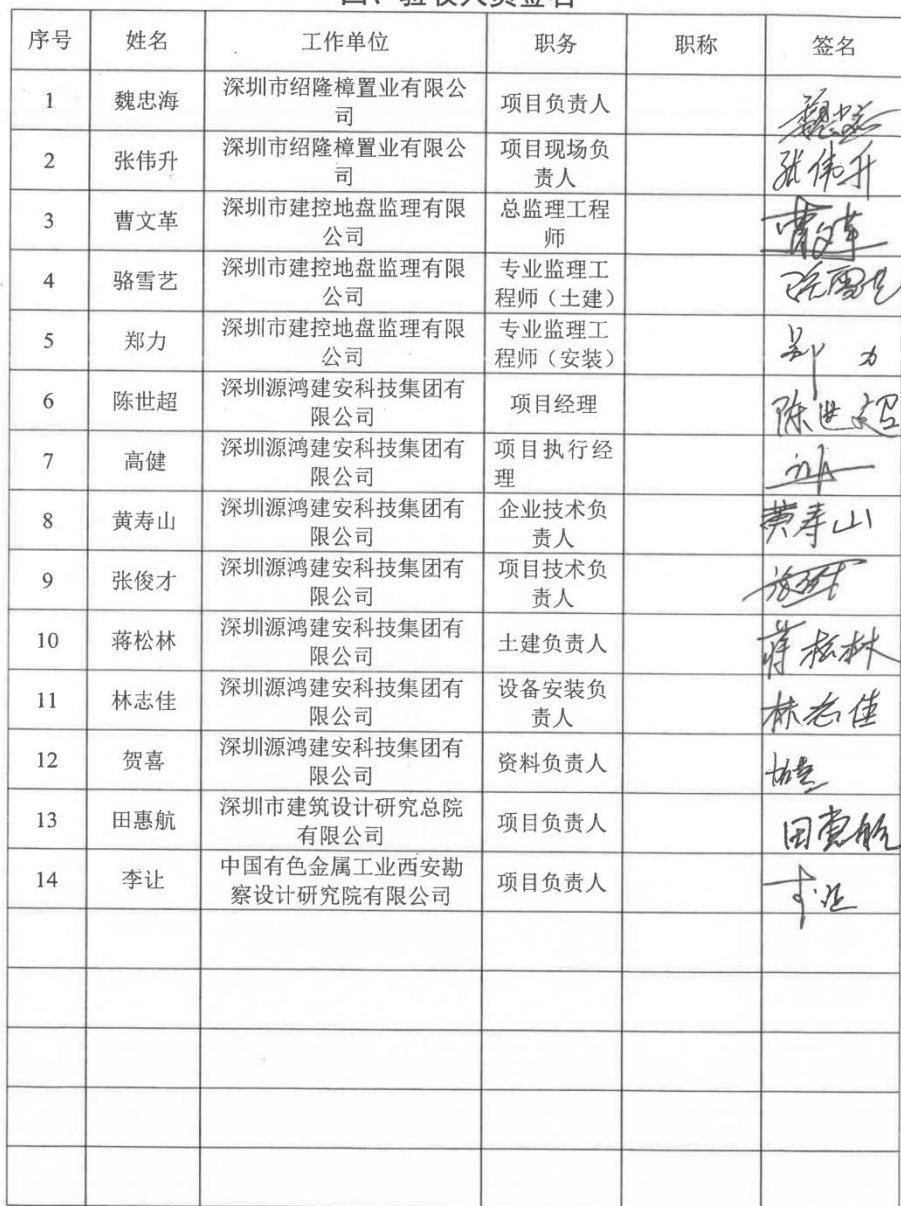 四、验收人员签名
序号 姓名 工作单位 职务 职称 签名
1 魏忠海 深圳市绍隆樟置业有限公
司 项目负责人
2 张伟升 深圳市绍隆樟置业有限公
司 项目现场负
责人 张伟升
3 曹文革 深圳市建控地盘监理有限
公司 总监理工程
师 曹文革
4 骆雪艺 深圳市建控地盘监理有限
公司 专业监理工
程师（土建） 骆雪艺
5 郑力 深圳市建控地盘监理有限
公司 专业监理工
程师（安装） 郑力
6 陈世超 深圳源鸿建安科技集团有
限公司 项目经理 陈世超
7 高健 深圳源鸿建安科技集团有
限公司 项目执行经
理
8 黄寿山 深圳源鸿建安科技集团有
限公司 企业技术负
责人 黄寿山
9 张俊才 深圳源鸿建安科技集团有
限公司 项目技术负
责人
10 蒋松林 深圳源鸿建安科技集团有
限公司 土建负责人 蒋松林
11 林志佳 深圳源鸿建安科技集团有
限公司 设备安装负
责人 林志佳
12 贺喜 深圳源鸿建安科技集团有
限公司 资料负责人
13 田惠航 深圳市建筑设计研究总院
有限公司 项目负责人 田惠航
14 李让 中国有色金属工业西安勘
察设计研究院有限公司 项目负责人 李让